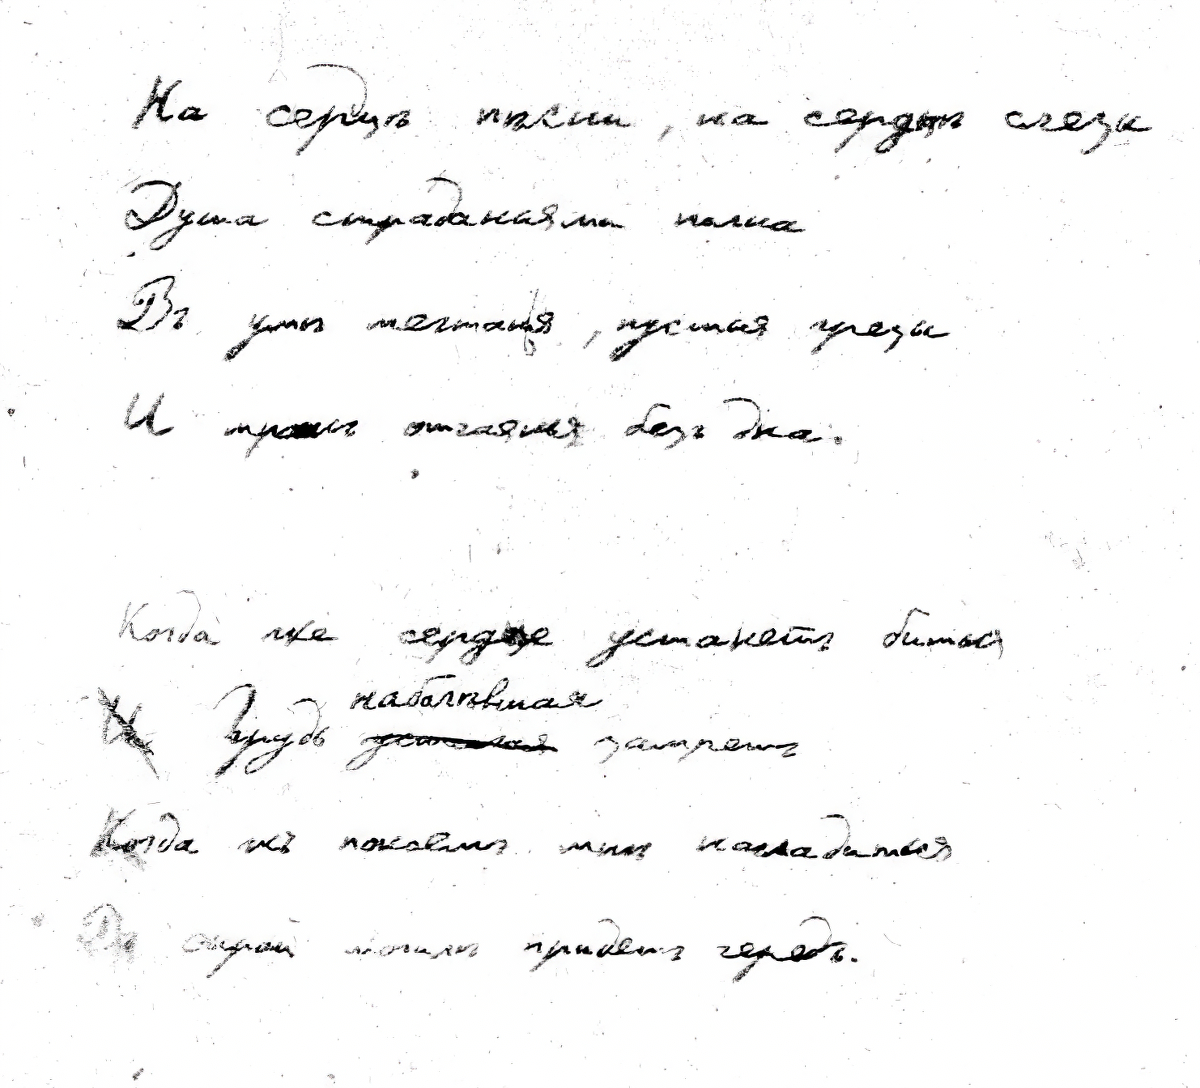 На сердцѣ пѣсни, на сердцѣ слезы
Душа страданьями полна
Въ умѣ мечтанья, пустыя грезы
И мракъ отчаянья безъ дна.
Когда же сердце устанетъ биться
Грудь наболѣвшая замретъ
Когда жъ покоемъ мнѣ насладиться
Въ сырой могилѣ придетъ чередъ.